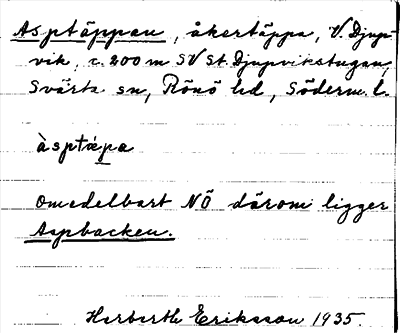 Asptäppan, åkertäppa, V. Djup-
vik, c. 200 m SV St. Djupvikstugan,
Svärta sn, Rönö hd, Söderm. l.
àsptæpa
Omedelbart NÖ därom ligger
Aspbacken.
Herberth Eriksson 1935.